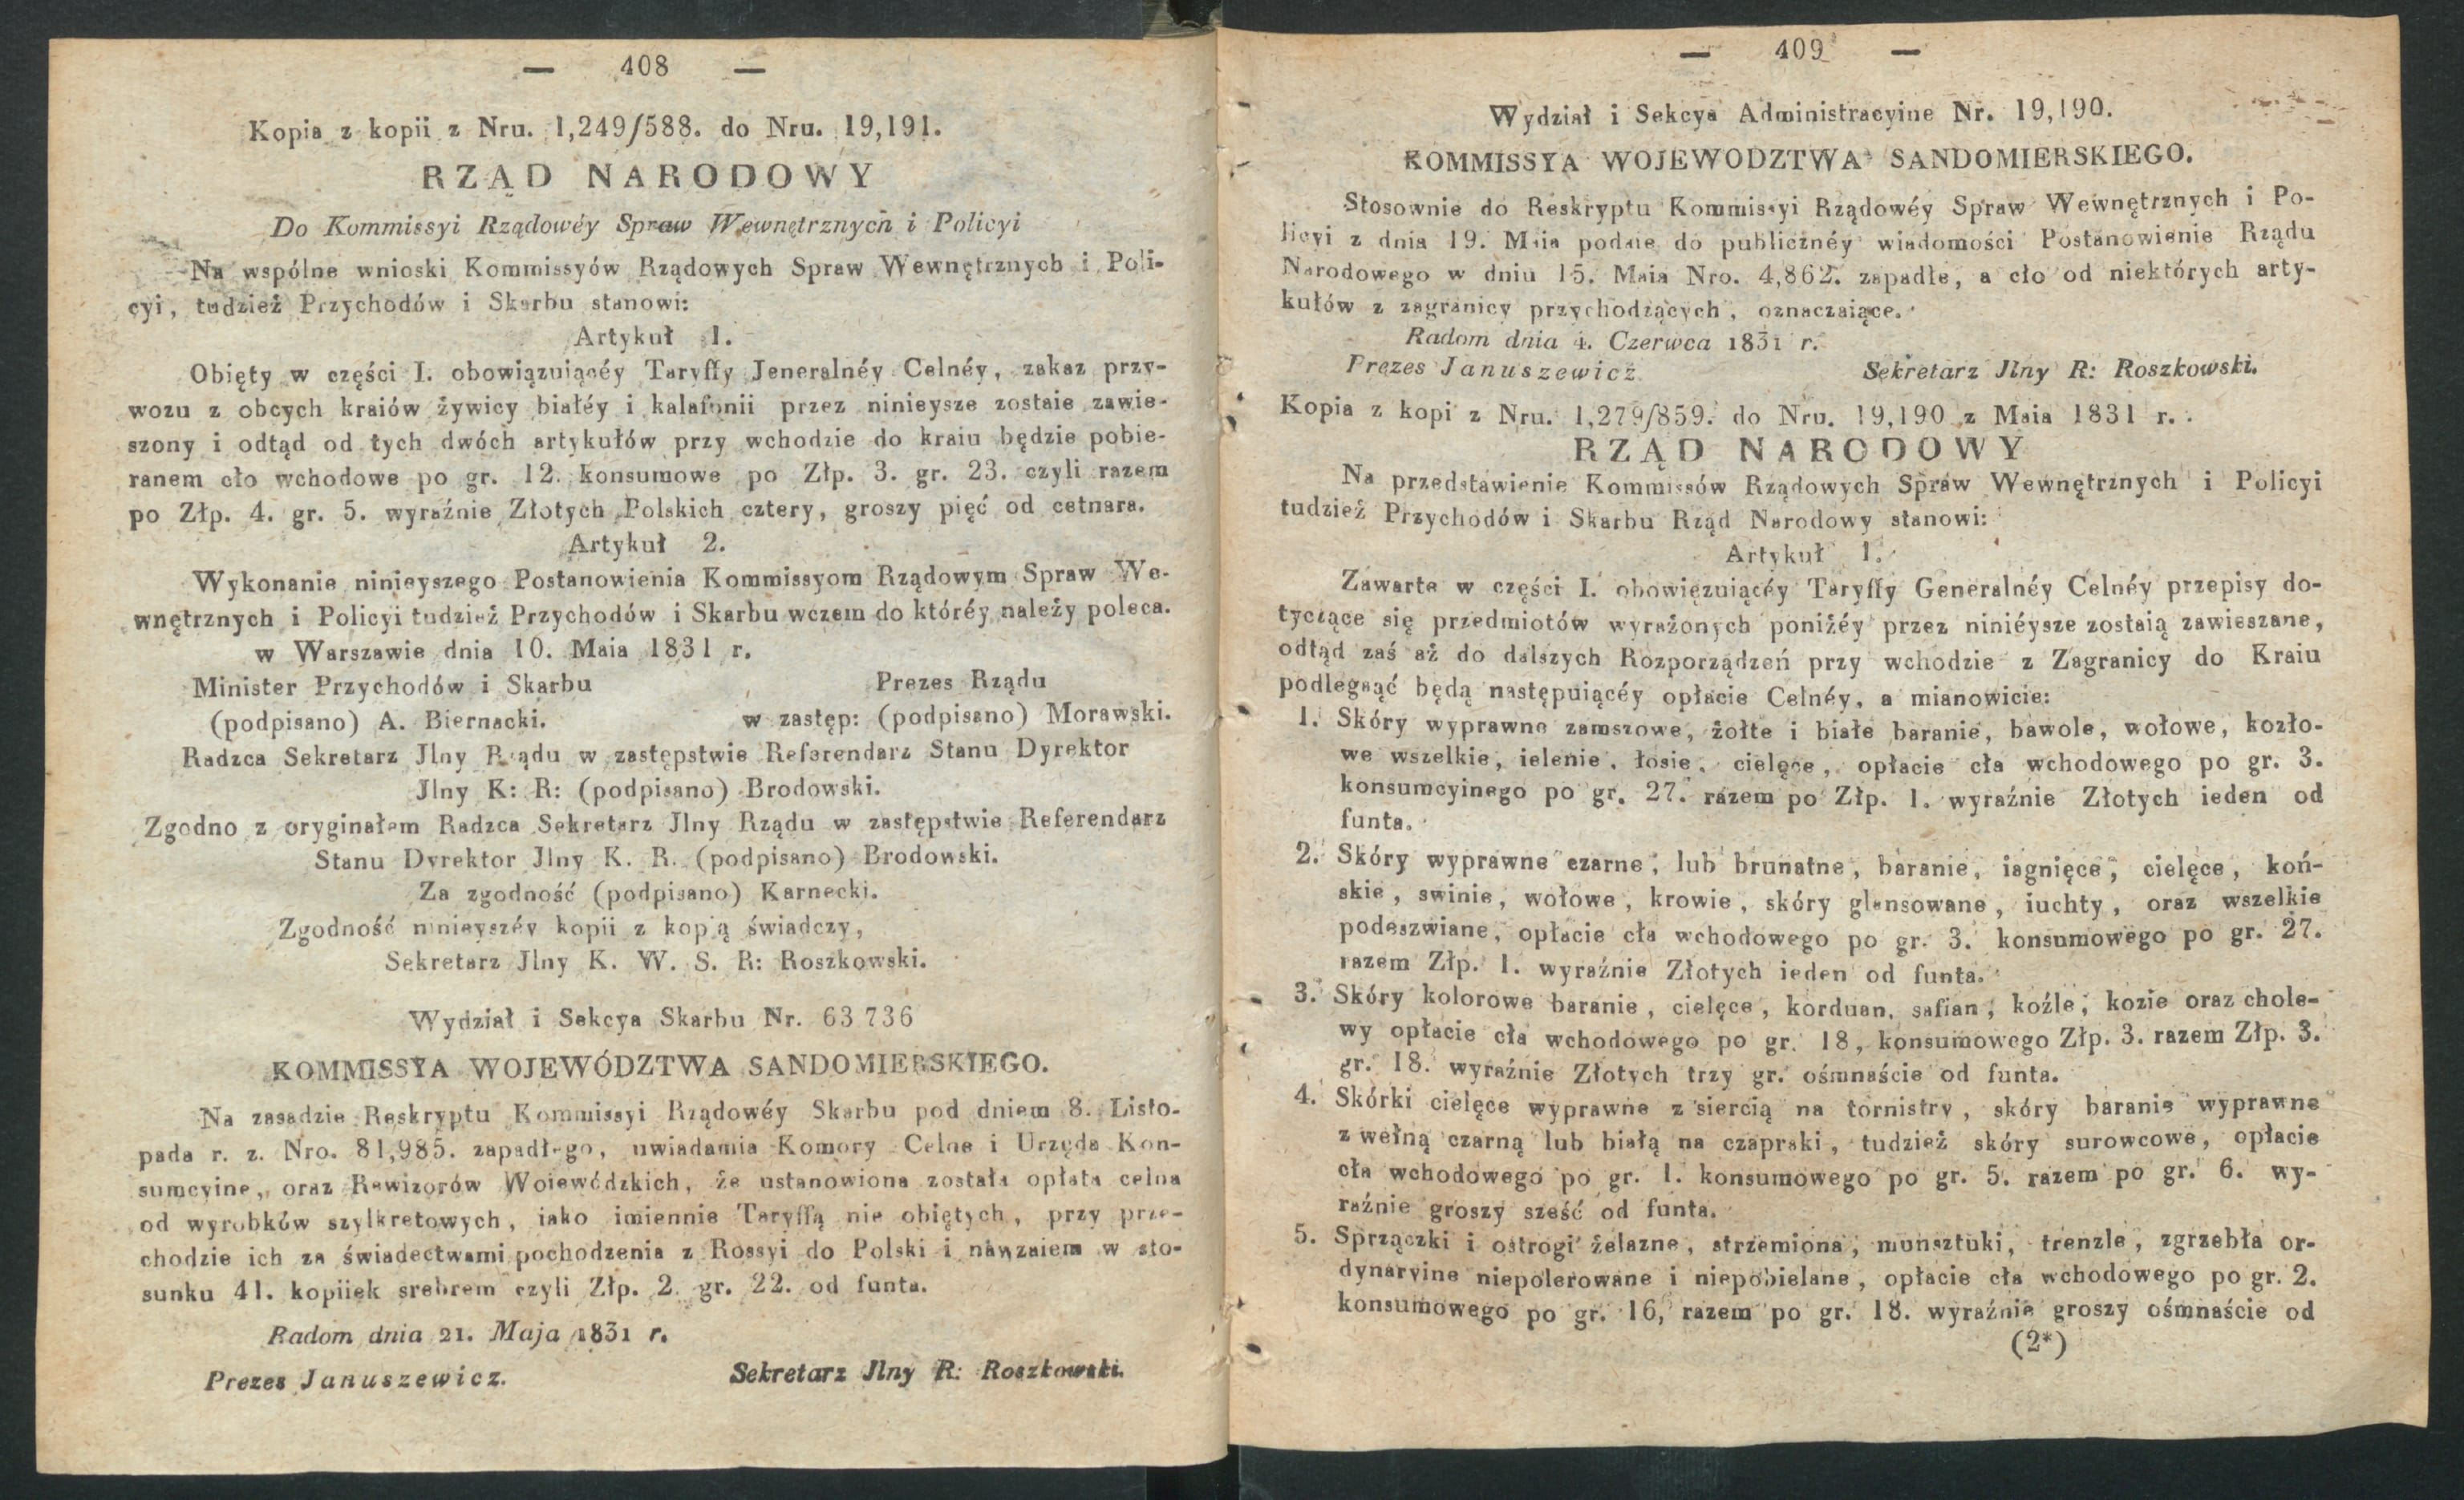 — 408 —
Kopia z kopii z Nru. 1,249/588. do Nru. 19,191.
RZĄD NARODOWY
Do Kommissyi Rządowéy Spraw Wewnętrznych i Policyi
Na wspólne wnioski Kommissyów Rządowych Spraw Wewnętrznych i Poli-
cyi, tudzież Przychodów i Skarbu stanowi:
Artykuł 1.
Obięty w części I. obowiązuiącéy Taryffy Jeneralnéy Celnéy, zakaz przy-
wozu z obcych kraiów żywicy białéy i kalafonii przez ninieysze zostaie zawie-
szony i odtąd od tych dwóch artykułów przy wchodzie do kraiu będzie pobie-
ranem cło wchodowe po gr. 12. konsumowe po Złp. 3. gr. 23. czyli razem
po Złp. 4. gr. 5. wyraźnie Złotych Polskich cztery, groszy pięć od cetnara.
Artykuł 2.
Wykonanie ninieyszego Postanowienia Kommissyom Rządowym Spraw We-
wnętrznych i Policyi tudzież Przychodów i Skarbu wczem do któréy należy poleca.
w Warszawie dnia 10. Maia 1831 r.
Minister Przychodów i Skarbu Prezes Rządu
(podpisano) A. Biernacki. w zastęp: (podpisano) Morawski.
Radzca Sekretarz Jlny Rządu w zastępstwie Referendarz Stanu Dyrektor
Jlny K: R: (podpisano) Brodowski.
Zgodno z oryginałem Radzca Sekretarz Jlny Rządu w zastępstwie Referendarz
Stanu Dyrektor Jlny K. R. (podpisano) Brodowski.
Za zgodność (podpisano) Karnecki.
Zgodność ninieyszéy kopii z kopią świadczy,
Sekretarz Jlny K. W. S. R: Roszkowski.
Wydział i Sekcya Skarbu Nr. 63 736
KOMMISSYA WOJEWÓDZTWA SANDOMIERSKIEGO.
Na zasadzie Reskryptu Kommissyi Rządowéy Skarbu pod dniem 8. Listo-
pada r. z. Nro. 81,985. zapadłego, uwiadamia Komory Celne i Urzęda Kon-
sumcyine, oraz Rewizorów Woiewódzkich, że ustanowiona została opłata celna
od wyrobków szylkretowych, iako imiennie Taryffą nie obiętych, przy prze-
chodzie ich za świadectwami pochodzenia z Rossyi do Polski i nawzaiem w sto-
sunku 41. kopiiek srebrem czyli Złp. 2. gr. 22. od funta.
Radom dnia 21. Maja 1831 r.
Prezes Januszewicz. Sekretarz Jlny R: Roszkowski.
— 409 —
Wydział i Sekcya Administracyine Nr. 19,190.
KOMMISSYA WOJEWODZTWA SANDOMIERSKIEGO.
Stosownie do Reskryptu Kommissyi Rządowéy Spraw Wewnętrznych i Po-
licyi z dnia 19. Maia podaie do publicznéy wiadomości Postanowienie Rządu
Narodowego w dniu 15. Maia Nro. 4,862. zapadłe, a cło od niektórych arty-
kułów z zagranicy przychodzących, oznaczaiące.
Radom dnia 4. Czerwca 1831 r.
Prezes Januszewicz Sekretarz Jlny R: Roszkowski.
Kopia z kopi z Nru. 1,279/859. do Nru. 19,190 z Maia 1831 r.
RZĄD NARODOWY
Na przedstawienie Kommissów Rządowych Spraw Wewnętrznych i Policyi
tudzież Przychodów i Skarbu Rząd Narodowy stanowi:
Artykuł 1.
Zawarte w części I. obowięzuiącéy Taryffy Generalnéy Celnéy przepisy do-
tyczące się przedmiotów wyrażonych poniżéy przez niniéysze zostaią zawieszane,
odtąd zaś aż do dalszych Rozporządzeń przy wchodzie z Zagranicy do Kraiu
podlegaąć będą następuiącéy opłacie Celnéy, a mianowicie:
1. Skóry wyprawne zamszowe, żołte i białe baranie, bawole, wołowe, kozło-
we wszelkie, ielenie, łosie, cielęce, opłacie cła wchodowego po gr. 3.
konsumcyinego po gr. 27. razem po Złp. 1. wyraźnie Złotych ieden od
funta.
2. Skóry wyprawne czarne, lub brunatne, baranie, iagnięce, cielęce, koń-
skie, swinie, wołowe, krowie, skóry glansowane, iuchty, oraz wszelkie
podeszwiane, opłacie cła wchodowego po gr. 3. konsumowego po gr. 27.
razem Złp. 1. wyraźnie Złotych ieden od funta.
3. Skóry kolorowe baranie, cielęce, korduan, safian, koźle, kozie oraz chole-
wy opłacie cła wchodowego po gr. 18, konsumowego Złp. 3. razem Złp. 3.
gr. 18. wyraźnie Złotych trzy gr. ośmnaście od funta.
4. Skórki cielęce wyprawne z siercią na tornistry, skóry baranie wyprawne
z wełną czarną lub białą na czapraki, tudzież skóry surowcowe, opłacie
cła wchodowego po gr. 1. konsumowego po gr. 5. razem po gr. 6. wy-
raźnie groszy sześć od funta.
5. Sprzączki i ostrogi żelazne, strzemiona, munsztuki, trenzle, zgrzebła or-
dynaryine niepolerowane i niepobielane, opłacie cła wchodowego po gr. 2.
konsumowego po gr. 16, razem po gr. 18. wyraźnie groszy ośmnaście od
(2*)